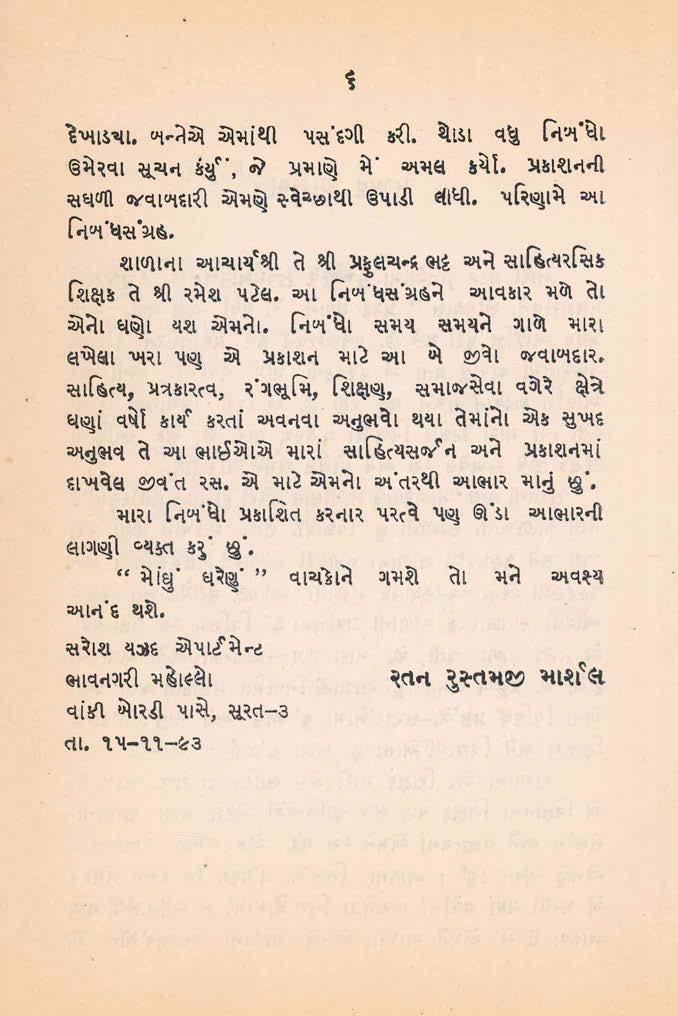 ૬
દેખાડયા. બન્નેએ એમાંથી પસંદગી કરી. થોડા વધુ નિબંધો
ઉમેરવા સૂચન કંર્યું, જે પ્રમાણે મેં અમલ કર્યો. પ્રકાશનની
સઘળી જવાબદારી એમણે સ્વેચ્છાથી ઉપાડી લીધી. પરિણામે આ
નિબંધસંગ્રહ.
શાળાના આચાર્યશ્રી તે શ્રી પ્રફુલચન્દ્ર ભટ્ટ અને સાહિત્યરસિક
શિક્ષક તે શ્રી રમેશ પટેલ. આ નિબંધસંગ્રહને આવકાર મળે તો
એનો ઘણો યશ એમનો. નિબંધો સમય સમયને ગાળે મારા
લખેલા ખરા પણ એ પ્રકાશન માટે આ બે જીવો જવાબદાર.
સાહિત્ય, પત્રકારત્વ, રંગભૂમિ, શિક્ષણ, સમાજસેવા વગેરે ક્ષેત્રે
ઘણાં વર્ષો કાર્ય કરતાં અવનવા અનુભવો થયા તેમાંનો એક સુખદ
અનુભવ તે આ ભાઈઓએ મારાં સાહિત્યસર્જન અને પ્રકાશનમાં
દાખવેલ જીવંત રસ. એ માટે એમનો અંતરથી આભાર માનું છું.
મારા નિબંધો પ્રકાશિત કરનાર પરત્વે પણ ઊંડા આભારની
લાગણી વ્યક્ત કરું છું.
“ મોંઘું ઘરેણું ” વાચકોને ગમશે તો મને અવશ્ય
આનંદ થશે.
સરોશ યઝદ એપાર્ટમેન્ટ
ભાવનગરી મહોલ્લો
રતન રુસ્તમજી માર્શલ
વાંકી બોરડી પાસે, સૂરત–૩
તા. ૧૫–૧૧–૯૩